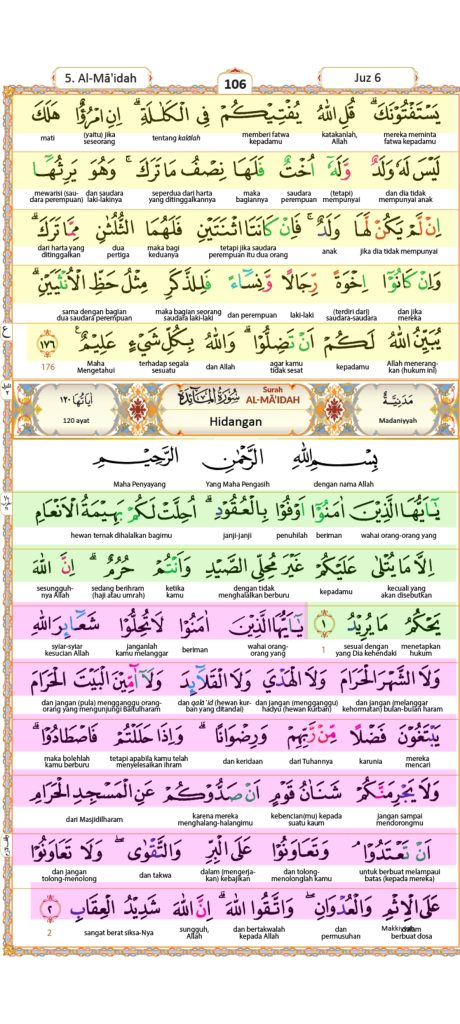 5. Al-Mā'idah 106 Juz 6
يَسْتَفْتُوْنَكَۗ قُلِ اللّٰهُ يُفْتِيْكُمْ فِى الْكَلٰلَةِۗ اِنِ امْرُؤٌا هَلَكَ
mereka meminta fatwa kepadamu katakanlah, Allah memberi fatwa kepadamu tentang kalālah (yaitu) jika seseorang mati
لَيْسَ لَهٗ وَلَدٌ وَّلَهٗٓ اُخْتٌ فَلَهَا نِصْفُ مَا تَرَكَۚ وَهُوَ يَرِثُهَآ
dan dia tidak mempunyai anak (tetapi) mempunyai saudara perempuan maka bagiannya seperdua dari harta yang ditinggalkannya dan saudara laki-lakinya mewarisi (saudara perempuan)
اِنْ لَّمْ يَكُنْ لَّهَا وَلَدٌۚ فَاِنْ كَانَتَا اثْنَتَيْنِ فَلَهُمَا الثُّلُثٰنِ مِمَّا تَرَكَۗ
jika dia tidak mempunyai anak tetapi jika saudara perempuan itu dua orang maka bagi keduanya dua pertiga dari harta yang ditinggalkan
وَاِنْ كَانُوْٓا اِخْوَةً رِّجَالًا وَّنِسَاۤءً فَلِلذَّكَرِ مِثْلُ حَظِّ الْاُنْثَيَيْنِۗ
dan jika mereka (terdiri dari) saudara-saudara laki-laki dan perempuan maka bagian seorang saudara laki-laki sama dengan bagian dua saudara perempuan
يُبَيِّنُ اللّٰهُ لَكُمْ اَنْ تَضِلُّوْاۗ وَاللّٰهُ بِكُلِّ شَيْءٍ عَلِيْمٌ ۝١٧٦
Allah menerangkan (hukum ini) kepadamu agar kamu tidak sesat dan Allah terhadap segala sesuatu Maha Mengetahui 176
مَدَنِيَّةٌ سُوْرَةُ الْمَاۤئِدَةِ اٰيَاتُهَا ١٢٠
Surah AL-MĀ'IDAH
Madaniyyah Hidangan 120 ayat
بِسْمِ اللّٰهِ الرَّحْمٰنِ الرَّحِيْمِ
dengan nama Allah Yang Maha Pengasih Maha Penyayang
يٰٓاَيُّهَا الَّذِيْنَ اٰمَنُوْٓا اَوْفُوْا بِالْعُقُوْدِۗ اُحِلَّتْ لَكُمْ بَهِيْمَةُ الْاَنْعَامِ
wahai orang-orang yang beriman penuhilah janji-janji hewan ternak dihalalkan bagimu
اِلَّا مَا يُتْلٰى عَلَيْكُمْ غَيْرَ مُحِلِّى الصَّيْدِ وَاَنْتُمْ حُرُمٌۗ اِنَّ اللّٰهَ
kecuali yang akan disebutkan kepadamu dengan tidak menghalalkan berburu ketika kamu sedang berihram (haji atau umrah) sesungguhnya Allah
يَحْكُمُ مَا يُرِيْدُ ۝١ يٰٓاَيُّهَا الَّذِيْنَ اٰمَنُوْا لَا تُحِلُّوْا شَعَاۤىِٕرَ اللّٰهِ
menetapkan hukum sesuai dengan yang Dia kehendaki 1 wahai orang-orang yang beriman janganlah kamu melanggar syiar-syiar kesucian Allah
وَلَا الشَّهْرَ الْحَرَامَ وَلَا الْهَدْيَ وَلَا الْقَلَاۤىِٕدَ وَلَآ اٰۤمِّيْنَ الْبَيْتَ الْحَرَامَ
dan jangan (melanggar kehormatan) bulan-bulan haram dan jangan (mengganggu) hadyu (hewan kurban) dan qalā'id (hewan kurban yang ditandai) dan jangan (pula) mengganggu orang-orang yang mengunjungi Baitulharam
يَبْتَغُوْنَ فَضْلًا مِّنْ رَّبِّهِمْ وَرِضْوَانًاۗ وَاِذَا حَلَلْتُمْ فَاصْطَادُوْاۗ
mereka mencari karunia dari Tuhannya dan keridaan tetapi apabila kamu telah menyelesaikan ihram maka bolehlah kamu berburu
وَلَا يَجْرِمَنَّكُمْ شَنَاٰنُ قَوْمٍ اَنْ صَدُّوْكُمْ عَنِ الْمَسْجِدِ الْحَرَامِ
jangan sampai mendorongmu kebencian(mu) kepada suatu kaum karena mereka menghalang-halangimu dari Masjidilharam
اَنْ تَعْتَدُوْاۘ وَتَعَاوَنُوْا عَلَى الْبِرِّ وَالتَّقْوٰىۖ وَلَا تَعَاوَنُوْا
untuk berbuat melampaui batas (kepada mereka) dan tolong-menolonglah kamu dalam (mengerjakan) kebajikan dan takwa dan jangan tolong-menolong
عَلَى الْاِثْمِ وَالْعُدْوَانِۖ وَاتَّقُوا اللّٰهَۗ اِنَّ اللّٰهَ شَدِيْدُ الْعِقَابِ ۝٢
dalam berbuat dosa dan permusuhan dan bertakwalah kepada Allah sungguh, Allah sangat berat siksa-Nya 2